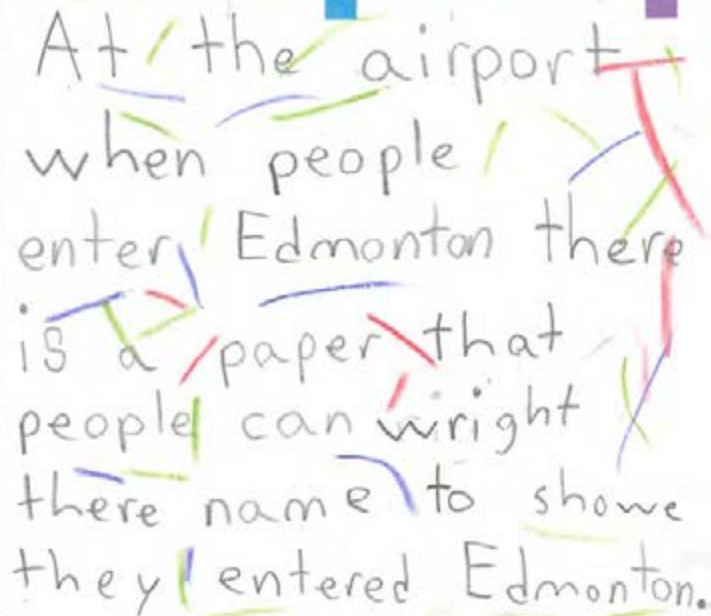 At the airport
when people
enter Edmonton there
is a paper that
people can wright
there name to showe
they entered Edmonton.